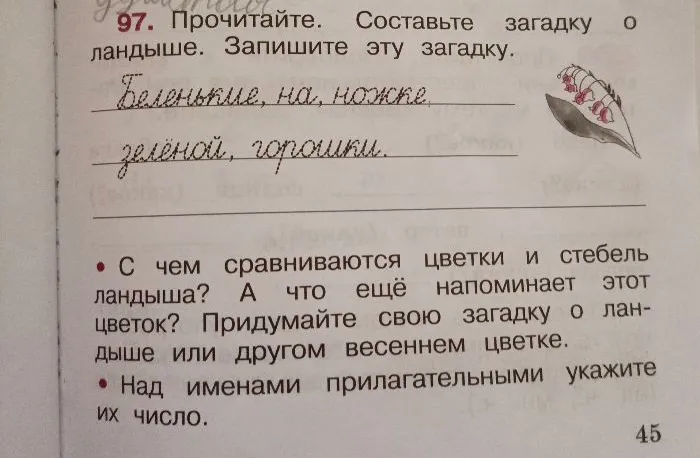 97. Прочитайте. Составьте загадку о
ландыше. Запишите эту загадку.
Беленькие, на, ножке,
зелёной, горошки.
• С чем сравниваются цветки и стебель
ландыша? А что ещё напоминает этот
цветок? Придумайте свою загадку о лан-
дыше или другом весеннем цветке.
• Над именами прилагательными укажите
их число.
45